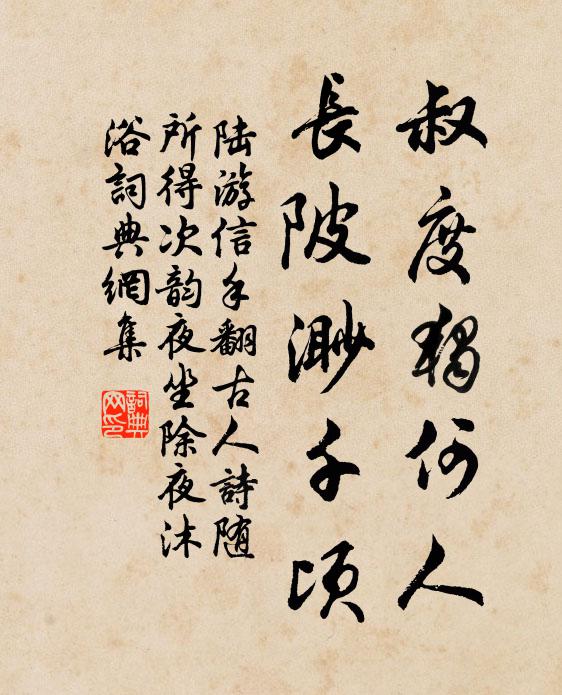 叔度獨何人
長陂渺千頃
陆游信手翻古人詩随
所得次韵夜坐除夜沐
浴詞典網集
詞典
网印